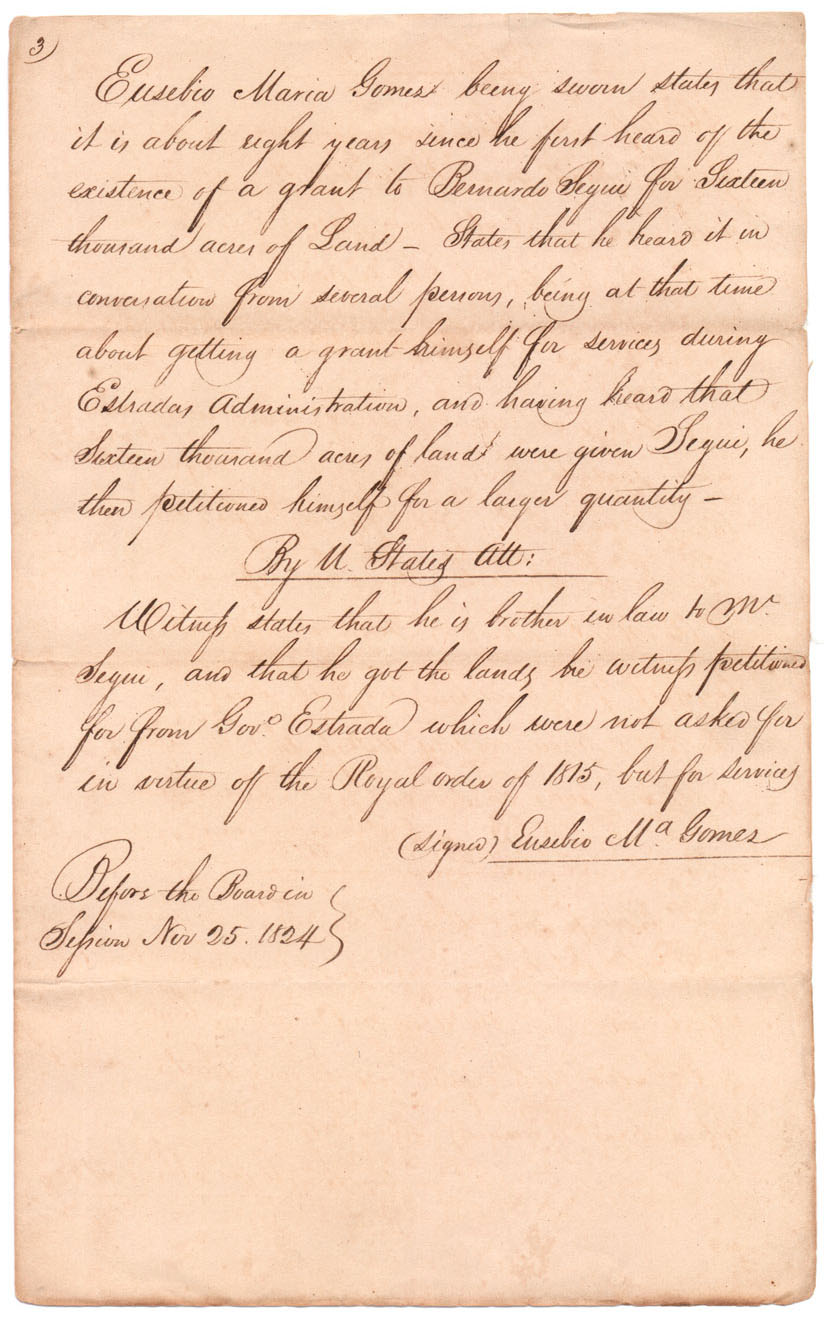 3)
Eusebio Maria Gomez being sworn states that
it is about eight years since he first heard of the
existence of a grant to Bernardo Segui for Sixteen
thousand acres of Land – States that he heard it in
conversation from several persons, being at that time
about getting a grant himself for services during
Estradas Administration, and having heard that
Sixteen thousand acres of land were given Segui, he
then petitioned himself for a larger quantity –
By U. States Att:
Witness states that he is brother in law to Mr.
Segui, and that he got the lands he witness petitioned
for from Govo. Estrada which were not asked for
in virtue of the Royal order of 1815, but for services
(signed) Eusebio Ma. Gomez
Before the Board in
Session Nov 25. 1824